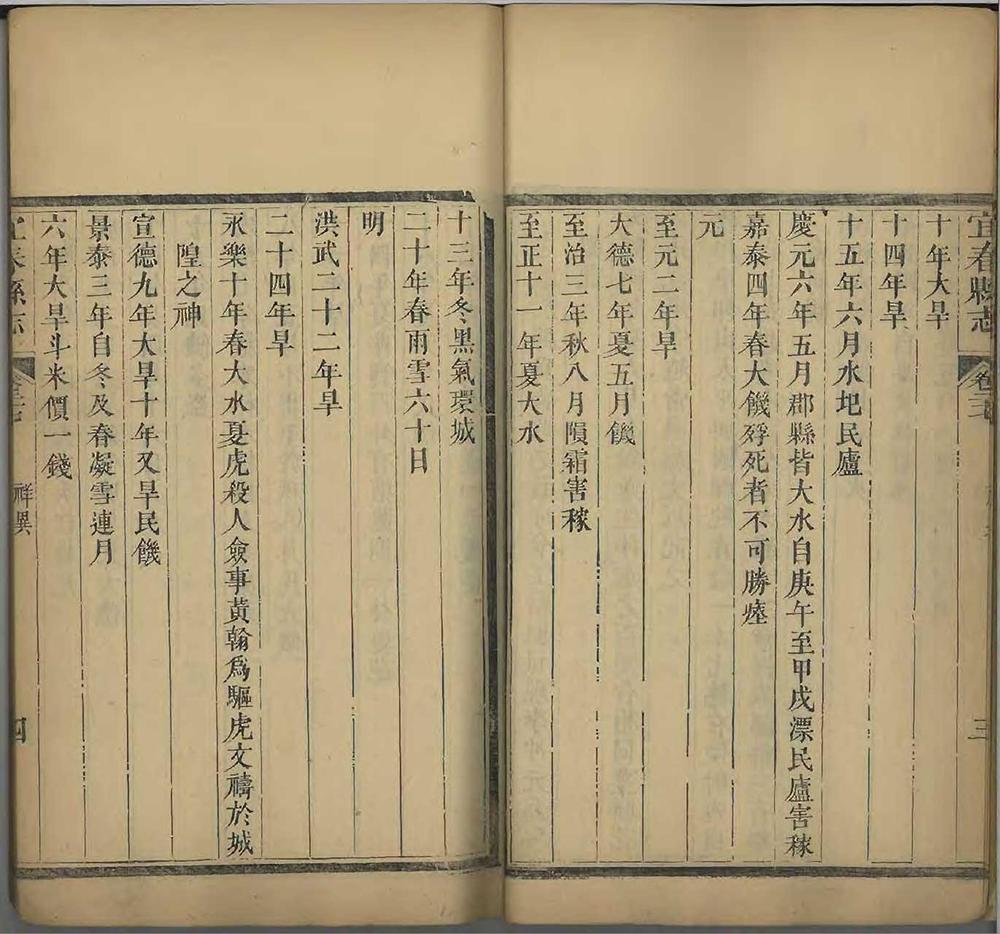 宜春縣志 卷二十七 三
十年大旱
十四年旱
十五年六月水圯民廬
慶元六年五月郡縣皆大水自庚午至甲戌漂民廬害稼
嘉泰四年春大饑殍死者不可勝瘞
元
至元二年旱
大德七年夏五月饑
至治三年秋八月隕霜害稼
至正十一年夏大水
十三年冬黑氣環城
二十年春雨雪六十日
明
洪武二十二年旱
二十四年旱
永樂十年春大水夏虎殺人僉事黃翰爲驅虎文禱於城
隍之神
宣德九年大旱十年又旱民饑
景泰三年自冬及春凝雪連月
六年大旱斗米價一錢
宜春縣志 祥異 四